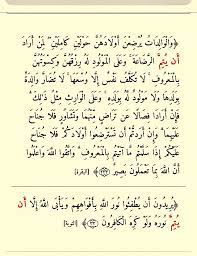 ﴿وَالْوَالِدَاتُ يُرْضِعْنَ أَوْلَادَهُنَّ حَوْلَيْنِ كَامِلَيْنِ ۖ لِمَنْ أَرَادَ
أَن يُتِمَّ الرَّضَاعَةَ ۚ وَعَلَى الْمَوْلُودِ لَهُ رِزْقُهُنَّ وَكِسْوَتُهُنَّ
بِالْمَعْرُوفِ ۚ لَا تُكَلَّفُ نَفْسٌ إِلَّا وُسْعَهَا ۚ لَا تُضَارَّ وَالِدَةٌ
بِوَلَدِهَا وَلَا مَوْلُودٌ لَّهُ بِوَلَدِهِ ۚ وَعَلَى الْوَارِثِ مِثْلُ ذَٰلِكَ ۗ
فَإِنْ أَرَادَا فِصَالًا عَن تَرَاضٍ مِّنْهُمَا وَتَشَاوُرٍ فَلَا جُنَاحَ
عَلَيْهِمَا ۗ وَإِنْ أَرَدتُّمْ أَن تَسْتَرْضِعُوا أَوْلَادَكُمْ فَلَا جُنَاحَ
عَلَيْكُمْ إِذَا سَلَّمْتُم مَّا آتَيْتُم بِالْمَعْرُوفِ ۗ وَاتَّقُوا اللَّهَ وَاعْلَمُوا
أَنَّ اللَّهَ بِمَا تَعْمَلُونَ بَصِيرٌ ﴿٢٣٣﴾ [البقرة]
﴿يُرِيدُونَ أَن يُطْفِئُوا نُورَ اللَّهِ بِأَفْوَاهِهِمْ وَيَأْبَى اللَّهُ إِلَّا أَن
يُتِمَّ نُورَهُ وَلَوْ كَرِهَ الْكَافِرُونَ ﴿٣٢﴾ [التوبة]